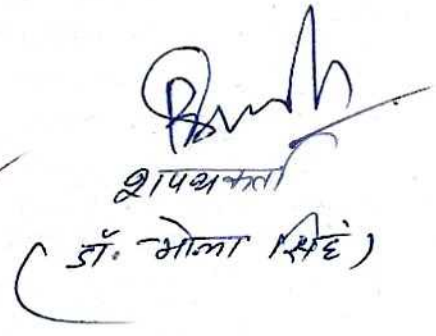 शपथकर्ता
(डॉ. भोला सिंह)